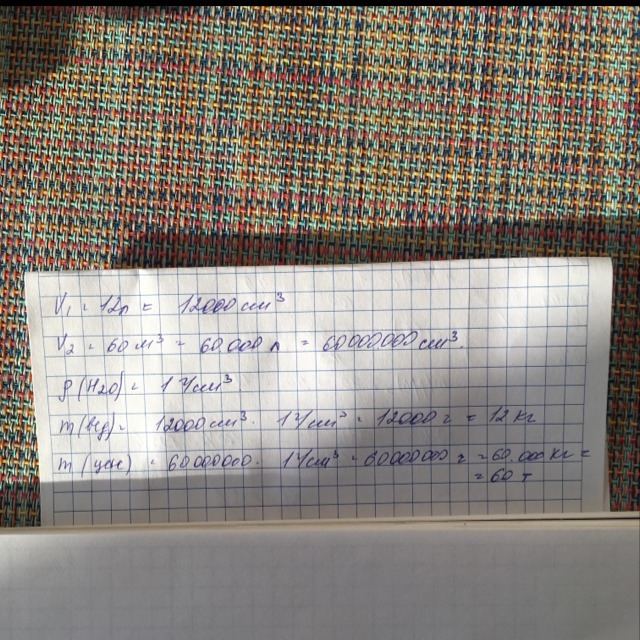 V₁ = 12л = 12000 см³
V₂ = 60 м³ = 60 000 л = 60000000 см³.
ρ(H₂O) = 1 г/см³
m(вед) = 12000 см³ · 1 г/см³ = 12000 г = 12 кг
m(цис) = 60000000 · 1 г/см³ = 60000000 г = 60.000 кг =
= 60 т